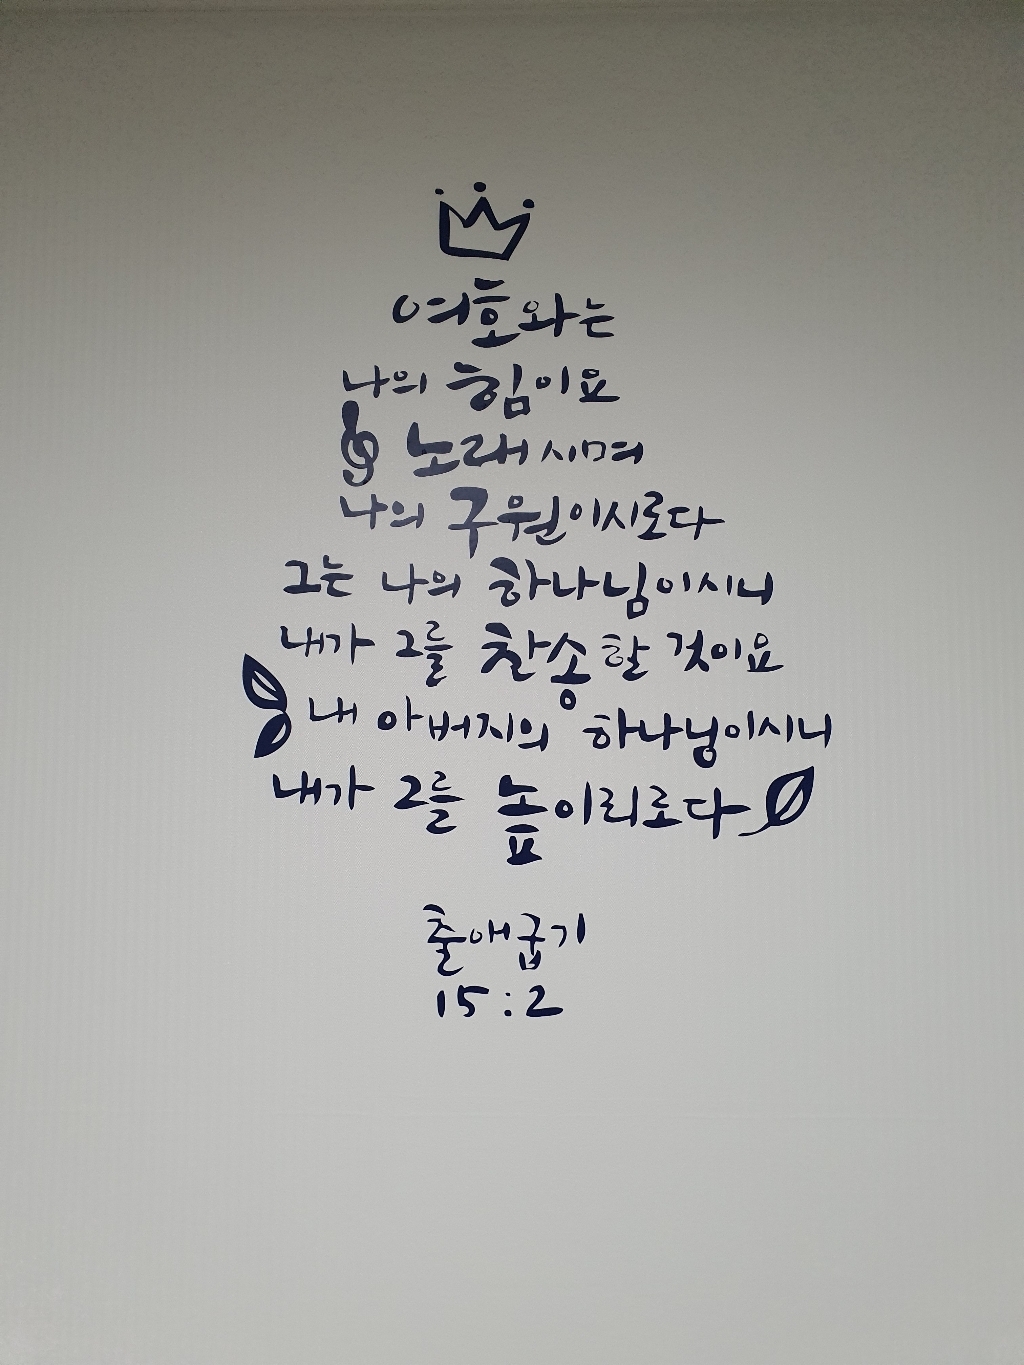 여호와는
나의 힘이요
노래시며
나의 구원이시로다
그는 나의 하나님이시니
내가 그를 찬송할 것이요
내 아버지의 하나님이시니
내가 그를 높이리로다
출애굽기
15:2